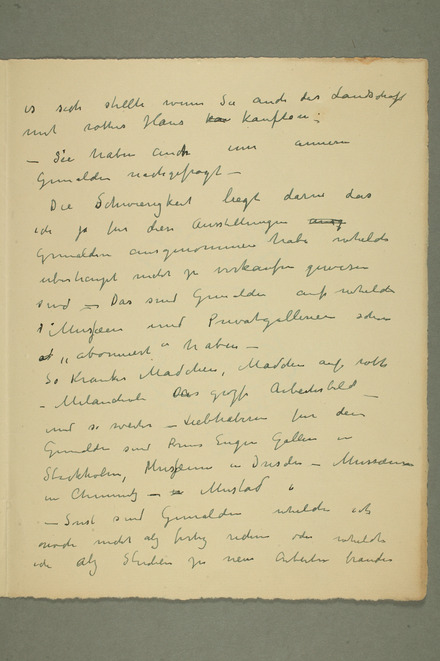 es sich stellte wenn Sie auch das Landschaft
mit rottes Haus kauften –
– Sie haben auch um annere
Gemelden nachgefragt –
Die Schwierigkeit liegt darin das
ich ja für diese Ausstellungen
Gemelden ausgenommen habe whelche
überhaupt nicht zu verkaufen gewesen
sind – Das sind Gemelden auf whelche
Museeen und Privatgallerien schon
„abonniert" haben –
So Kranks Madchen, Madchen auf
– Melancholi Das grosse Arbeiterbild –
und so weiter – Liebhabern für den
Gemelden sind Prins Eugen Gallen in
Stockholm, Museum in Dresden – Museum
in Chemnitz – Mustad
– Sonst sind Gemelden whelche ich
nicht als fertig oder whelche
ich als Studien zu neue Arbeiten brauche